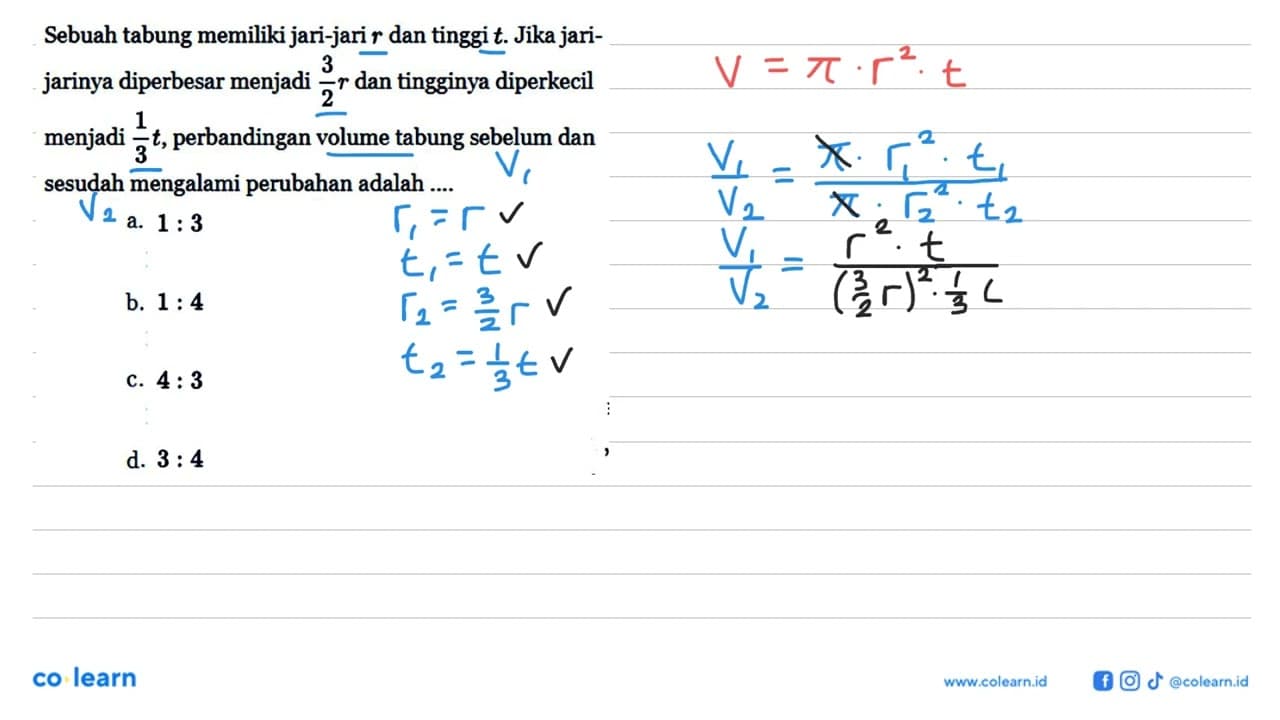 Sebuah tabung memiliki jari-jari r dan tinggi t. Jika jari-
jarinya diperbesar menjadi 3/2 r dan tingginya diperkecil
menjadi 1/3 t, perbandingan volume tabung sebelum dan
sesudah mengalami perubahan adalah ....
V₁
V₂
a. 1 : 3
b. 1 : 4
c. 4 : 3
d. 3 : 4
r₁ = r ✓
t₁ = t ✓
r₂ = 3/2 r ✓
t₂ = 1/3 t ✓
V = π · r² · t
V₁/V₂ = π · r₁² · t₁ / π · r₂² · t₂
V₁/V₂ = r² · t / (3/2 r)² · 1/3
co learn
www.colearn.id
@colearn.id